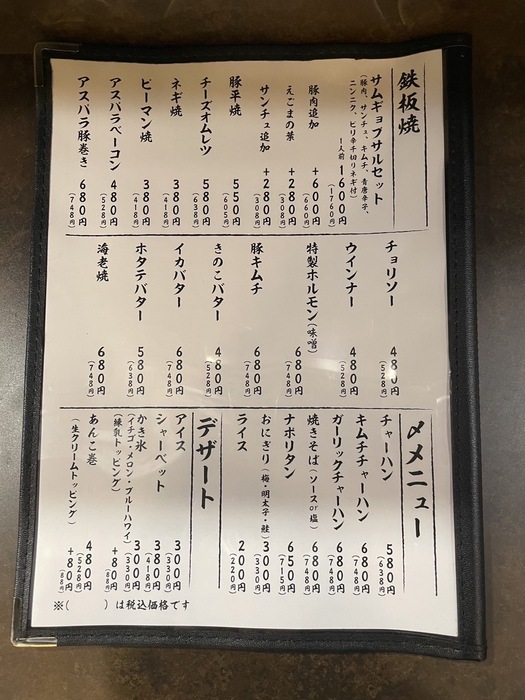 鉄板焼
サムギョプサルセット
(豚肉、サンチュ、キムチ、青唐辛子、
ニンニク、ピリ辛千切りネギ付)
1人前 1600円
(1760円)
豚肉追加 +600円
(660円)
えごまの葉 +280円
(308円)
サンチュ追加 +280円
(308円)
豚平焼 550円
(605円)
チーズオムレツ 580円
(638円)
ネギ焼 380円
(418円)
ピーマン焼 380円
(418円)
アスパラベーコン 480円
(528円)
アスパラ豚巻き 680円
(748円)
チョリソー 480円
(528円)
ウインナー 480円
(528円)
特製ホルモン(味噌) 680円
(748円)
豚キムチ 680円
(748円)
きのこバター 480円
(528円)
イカバター 680円
(748円)
ホタテバター 580円
(638円)
海老焼 680円
(748円)
〆メニュー
チャーハン 580円
(638円)
キムチチャーハン 680円
(748円)
ガーリックチャーハン 680円
(748円)
焼きそば(ソースor塩) 680円
(748円)
ナポリタン 650円
(715円)
おにぎり(梅・明太子・鮭) 300円
(330円)
ライス 200円
(220円)
デザート
アイス 300円
(330円)
シャーベット 380円
(418円)
かき氷 300円
(イチゴ・メロン・ブルーハワイ) (330円)
(練乳トッピング) +80円
(88円)
あんこ巻 480円
(528円)
(生クリームトッピング) +80円
(88円)
※( )は税込価格です